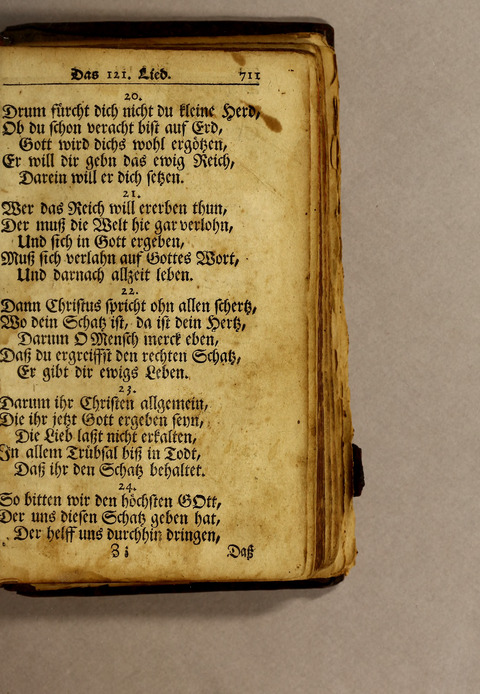 Das 121. Lied. 711
20.
Drum fürcht dich nicht du kleine Herd,
Ob du schon veracht bist auf Erd,
Gott wird dichs wohl ergötzen,
Er will dir gebn das ewig Reich,
Darein will er dich setzen.
21.
Wer das Reich will ererben thun,
Der muß die Welt hie gar verlohn,
Und sich in Gott ergeben,
Muß sich verlahn auf Gottes Wort,
Und darnach allzeit leben.
22.
Dann Christus spricht ohn allen schertz,
Wo dein Schatz ist, da ist dein Hertz,
Darum O Mensch merck eben,
Daß du ergreiffst den rechten Schatz,
Er gibt dir ewigs Leben.
23.
Darum ihr Christen allgemein,
Die ihr jetzt Gott ergeben seyn,
Die Lieb laßt nicht erkalten,
In allem Trübsal biß in Todt,
Daß ihr den Schatz behaltet.
24.
So bitten wir den höchsten GOtt,
Der uns diesen Schatz geben hat,
Der helff uns durchhin dringen,
Zi Daß